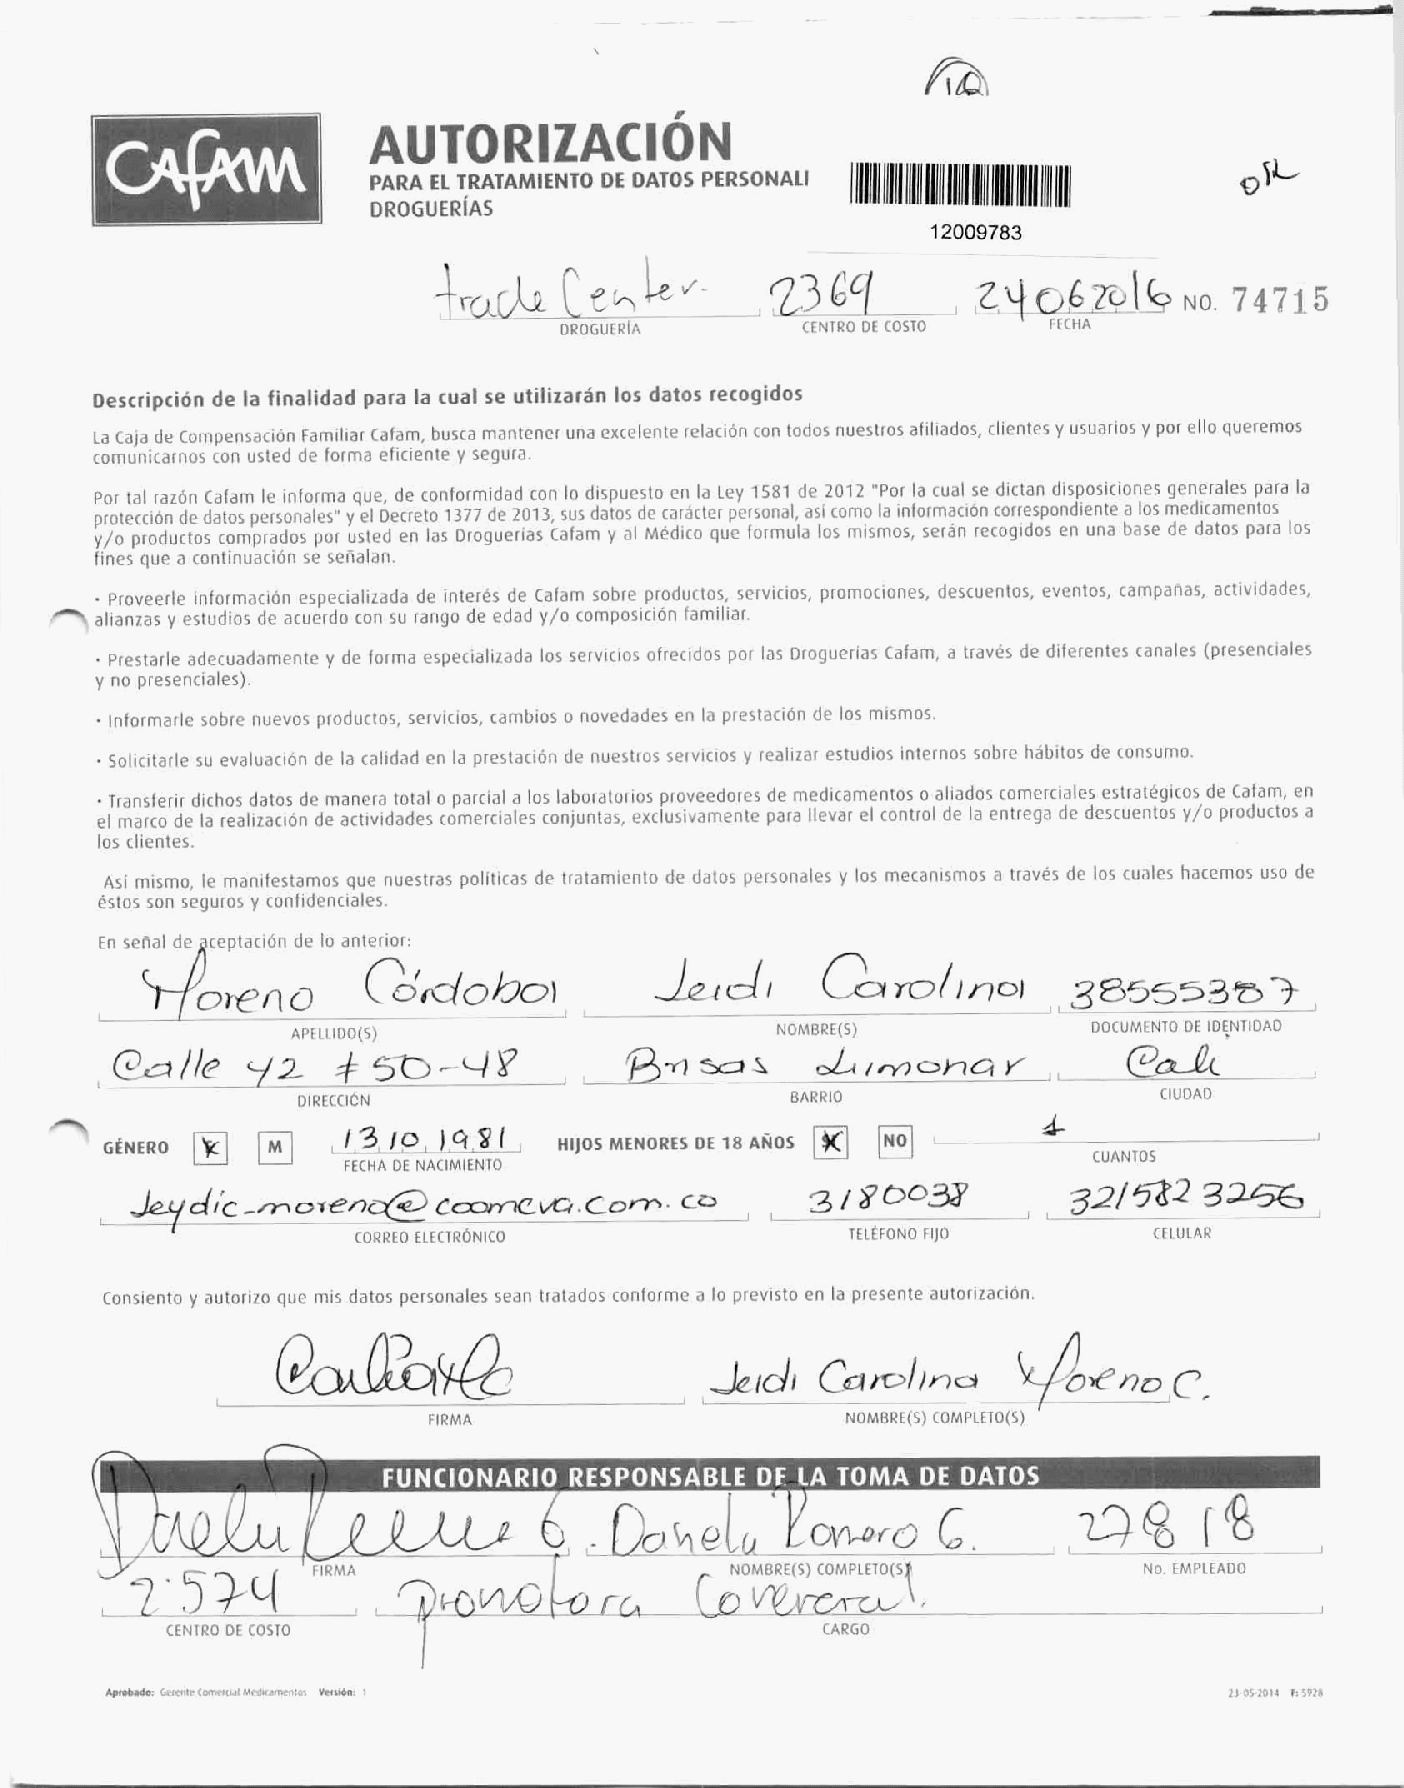 CAFAM
AUTORIZACIÓN
PARA EL TRATAMIENTO DE DATOS PERSONALI
DROGUERÍAS
OK
12009783
trade Center. 2369 24062016 NO. 74715
DROGUERÍA CENTRO DE COSTO FECHA
Descripción de la finalidad para la cual se utilizarán los datos recogidos
La Caja de Compensación Familiar Cafam, busca mantener una excelente relación con todos nuestros afiliados, clientes y usuarios y por ello queremos
comunicarnos con usted de forma eficiente y segura.
Por tal razón Cafam le informa que, de conformidad con lo dispuesto en la Ley 1581 de 2012 "Por la cual se dictan disposiciones generales para la
protección de datos personales" y el Decreto 1377 de 2013, sus datos de carácter personal, así como la información correspondiente a los medicamentos
y/o productos comprados por usted en las Droguerías Cafam y al Médico que formula los mismos, serán recogidos en una base de datos para los
fines que a continuación se señalan.
· Proveerle información especializada de interés de Cafam sobre productos, servicios, promociones, descuentos, eventos, campañas, actividades,
alianzas y estudios de acuerdo con su rango de edad y/o composición familiar.
· Prestarle adecuadamente y de forma especializada los servicios ofrecidos por las Droguerías Cafam, a través de diferentes canales (presenciales
y no presenciales).
· Informarle sobre nuevos productos, servicios, cambios o novedades en la prestación de los mismos.
· Solicitarle su evaluación de la calidad en la prestación de nuestros servicios y realizar estudios internos sobre hábitos de consumo.
· Transferir dichos datos de manera total o parcial a los laboratorios proveedores de medicamentos o aliados comerciales estratégicos de Cafam, en
el marco de la realización de actividades comerciales conjuntas, exclusivamente para llevar el control de la entrega de descuentos y/o productos a
los clientes.
Así mismo, le manifestamos que nuestras políticas de tratamiento de datos personales y los mecanismos a través de los cuales hacemos uso de
éstos son seguros y confidenciales.
En señal de aceptación de lo anterior:
Moreno Córdoba Jeidi Carolina 38555387
APELLIDO(S) NOMBRE(S) DOCUMENTO DE IDENTIDAD
Calle 42 # 50-48 Brisas Limonar Cali
DIRECCIÓN BARRIO CIUDAD
GÉNERO X M 13 10 1981 HIJOS MENORES DE 18 AÑOS X NO 1
FECHA DE NACIMIENTO CUANTOS
Jeydic_moreno@coomeva.com.co 3180038 3215823256
CORREO ELECTRÓNICO TELÉFONO FIJO CELULAR
Consiento y autorizo que mis datos personales sean tratados conforme a lo previsto en la presente autorización.
Jeidi Carolina Moreno C.
FIRMA NOMBRE(S) COMPLETO(S)
FUNCIONARIO RESPONSABLE DE LA TOMA DE DATOS
Daniela Romero G. 27818
FIRMA NOMBRE(S) COMPLETO(S) No. EMPLEADO
2574 promotora Coveral.
CENTRO DE COSTO CARGO
Aprobado: Gerente Comercial Medicamentos Versión: 1 23-05-2014 F: 5928